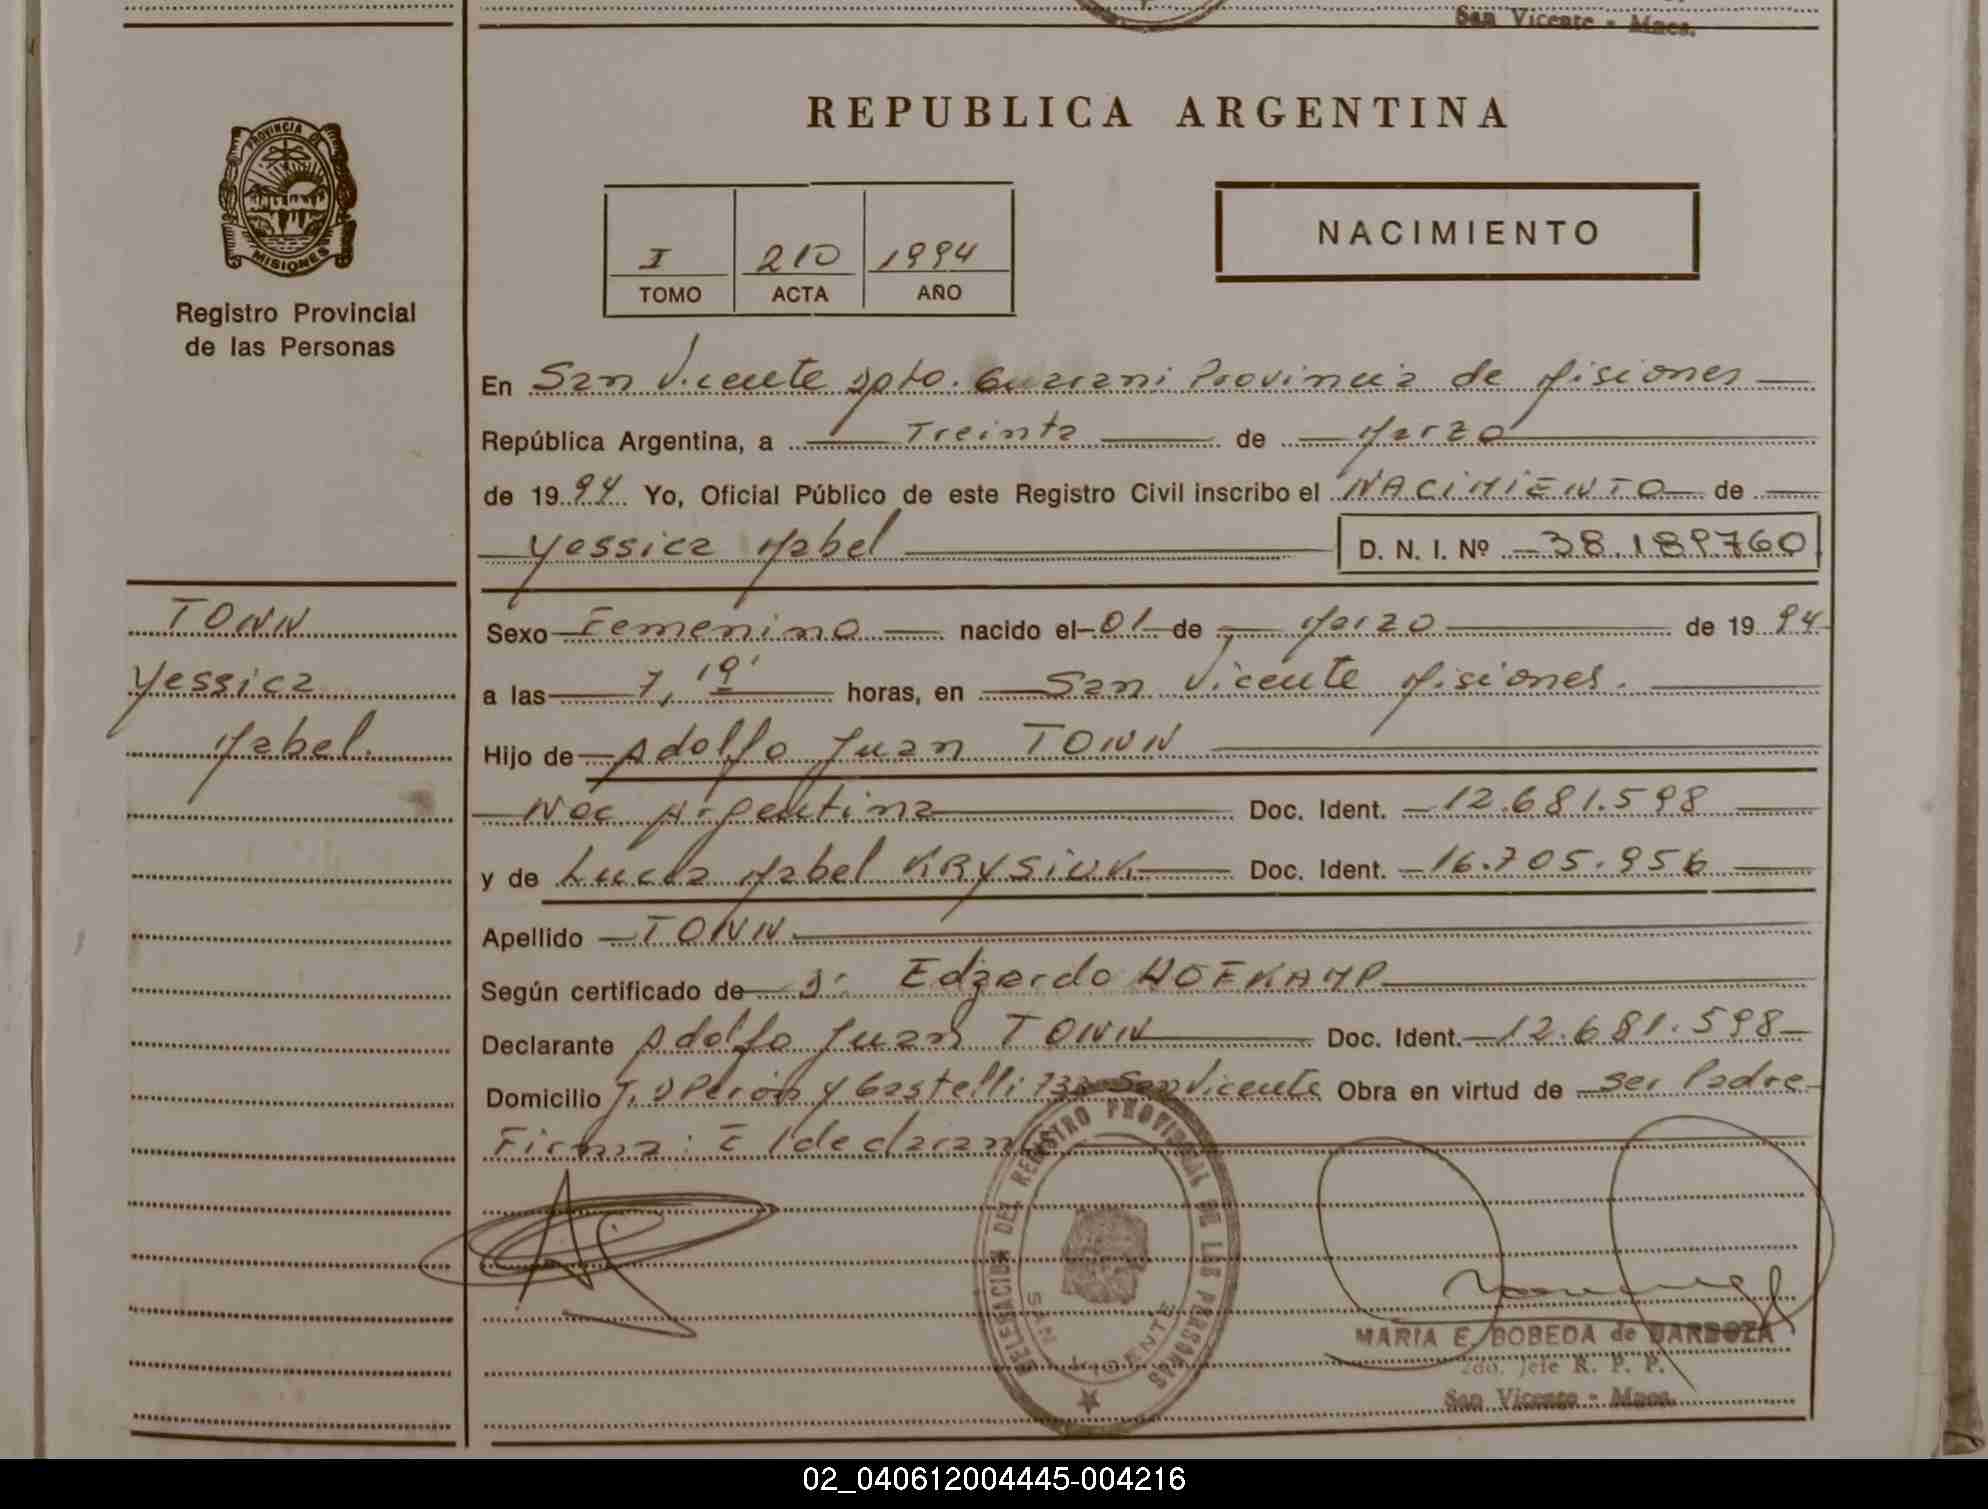 San Vicente - Mnes.
REPUBLICA ARGENTINA
PROVINCIA DE
MISIONES
Registro Provincial
de las Personas
I 210 1994
TOMO ACTA AÑO
NACIMIENTO
En San Vicente Dpto. Guarani Provincia de Misiones
República Argentina, a Treinta de Marzo
de 1994 Yo, Oficial Público de este Registro Civil inscribo el NACIMIENTO de
Yessica Mabel D. N. I. Nº 38.189760
TONN
Yessica
Mabel.
Sexo Femenino nacido el 01 de Marzo de 1994
a las 7,19' horas, en San Vicente Misiones.
Hijo de Adolfo Juan TONN
Nac Argentina Doc. Ident. 12.681.598
y de Lucia Mabel KRYSIUK Doc. Ident. 16.705.956
Apellido TONN
Según certificado de Dr. Edgardo HOFKAMP
Declarante Adolfo Juan TONN Doc. Ident. 12.681.598
Domicilio J. D Perón y Castelli 733 San Vicente Obra en virtud de ser Padre
Firma: El declarante
DELEGACION DEL REGISTRO PROVINCIAL DE LAS PERSONAS
SAN VICENTE
MARIA E. BOBEDA de BARBOZA
2do. Jefe R. P. P.
San Vicente - Mnes.
02_040612004445-004216